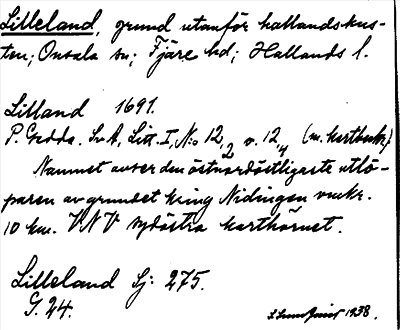 Lilleland, grund utanför hallandskus-
ten; Onsala sn; Fjäre hd; Hallands l.
Lilland 1691.
P. Gedda. Sv A, Litt. I, N:o 12,2 o. 12,4 (m. kartbeskr.)
Namnet avser den östnordöstligaste utlö-
paren av grundet kring Nidingen omkr.
10 km. VNV sydöstra karthörnet.
Lilleland Sj: 275.
G. 24.
1938.